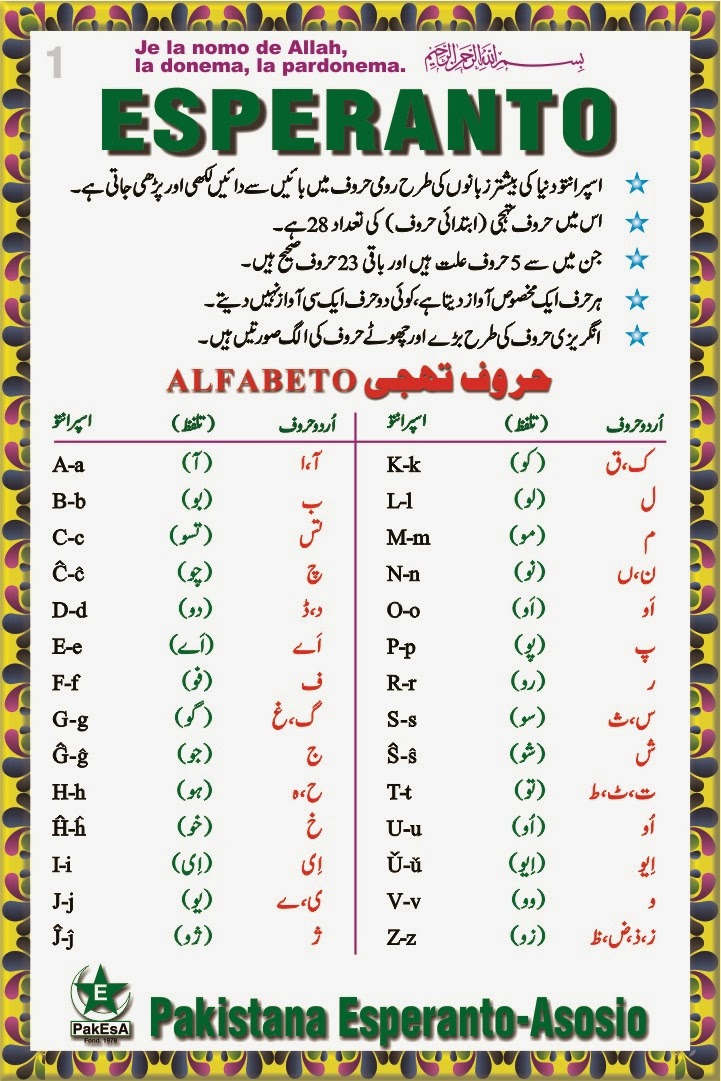 1
Je la nomo de Allah,
la donema, la pardonema.
بسم اللہ الرحمن الرحیم
ESPERANTO
اسپرانتو دنیا کی بیشتر زبانوں کی طرح رومی حروف میں بائیں سے دائیں لکھی اور پڑھی جاتی ہے۔
اس میں حروف تہجی (ابتدائی حروف) کی تعداد 28 ہے۔
جن میں سے 5 حروف علت ہیں اور باقی 23 حروف صحیح ہیں۔
ہر حرف ایک مخصوص آواز دیتا ہے، کوئی دو حرف ایک سی آواز نہیں دیتے۔
انگریزی حروف کی طرح بڑے اور چھوٹے حروف کی الگ صورتیں ہیں۔
ALFABETO حروف تہجی
اسپرانتو (تلفظ) اُردو حروف
A-a (آ) آ،ا
B-b (بو) ب
C-c (تسو) تس
Ĉ-ĉ (چو) چ
D-d (دو) د،ڈ
E-e (اَے) اَے
F-f (فو) ف
G-g (گو) گ،غ
Ĝ-ĝ (جو) ج
H-h (ہو) ح،ہ
Ĥ-ĥ (خو) خ
I-i (اِی) اِی
J-j (یو) ی،ے
Ĵ-ĵ (ژو) ژ
اسپرانتو (تلفظ) اُردو حروف
K-k (کو) ک،ق
L-l (لو) ل
M-m (مو) م
N-n (نو) ن،ں
O-o (اَو) اَو
P-p (پو) پ
R-r (رو) ر
S-s (سو) س،ث
Ŝ-ŝ (شو) ش
T-t (تو) ت،ٹ،ط
U-u (اُو) اُو
Ǔ-ǔ (اِیو) اِیو
V-v (وو) و
Z-z (زو) ز،ذ،ض،ظ
E
PakEsA
Fond. 1978
Pakistana Esperanto-Asosio